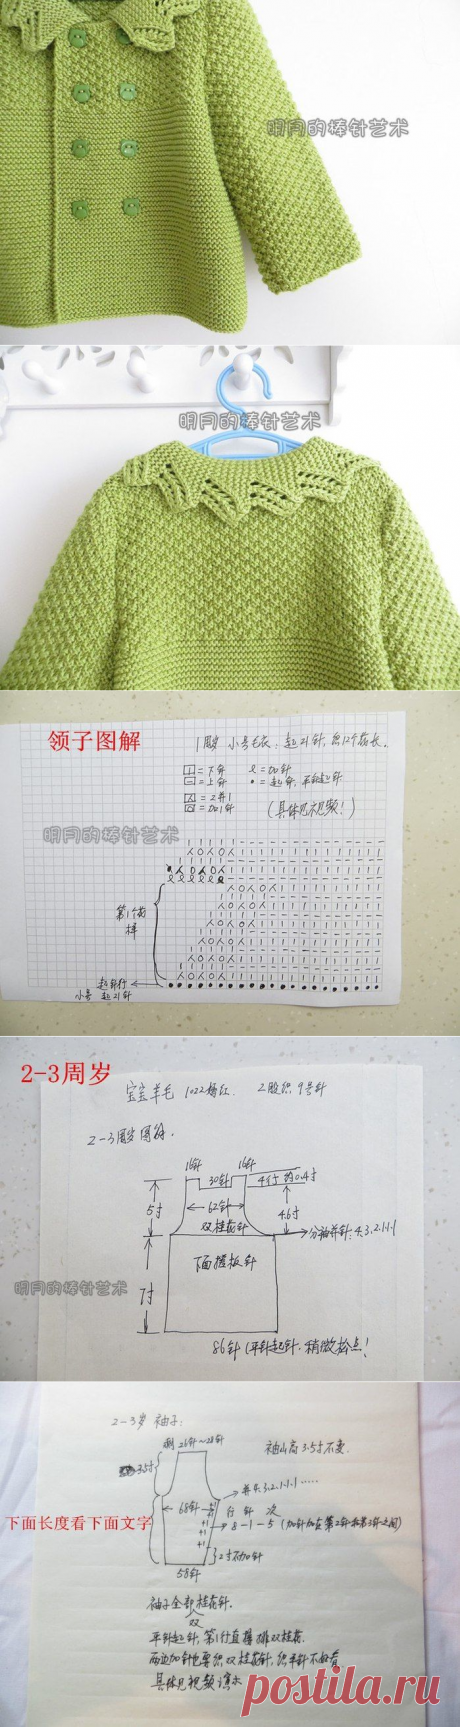 明月的棒针艺术
明月的棒针艺术
领子图解
1周岁 小号毛衣: 起21针, 织12个花长。
| = 下针
— = 上针
人 = 2并1
O = 加1针
(具体见视频!)
明月的棒针艺术
第1个花样
起针行
小号 起21针
2-3周岁
宝宝羊毛 1022
2股织 9号针
2-3周岁
16针 30针 16针
4行 约0.4寸
5寸
62针
4.6寸
双桂花针
分袖并针: 4.3.2.1.1.1
下面搓板针
7寸
明月的棒针艺术
86针 (平针起针, 稍微松点!
2-3岁 袖子:
剩 26针~28针
袖山高 3.5寸不变.
3.5寸
并4.3.2.1.1.1……
68针
行 针 次
下面长度看下面文字
8-1-5
+1
+1
+1
2寸不加针
58针
袖子全部双桂花针.
平针起针, 第1行直接排双桂花.
两边加针也要织双桂花针, 织平针不好看
具体见视频演示
postila.ru